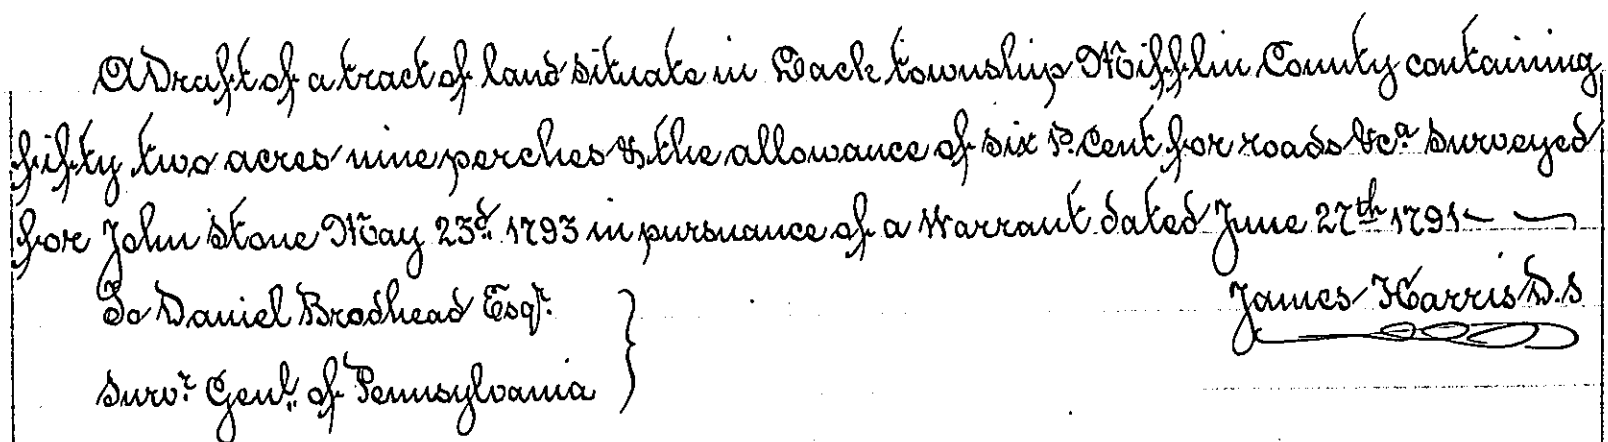 A Draft of a tract of land situate in Lack township Mifflin County containing
fifty two acres nine perches & the allowance of six P. Cent for roads &c.a Surveyed
for John Stone May 23d. 1793 in pursuance of a Warrant dated June 27th 1791
To Daniel Brodhead Esqr.
James Harris D.S
Survr. Genl. of Pennsylvania